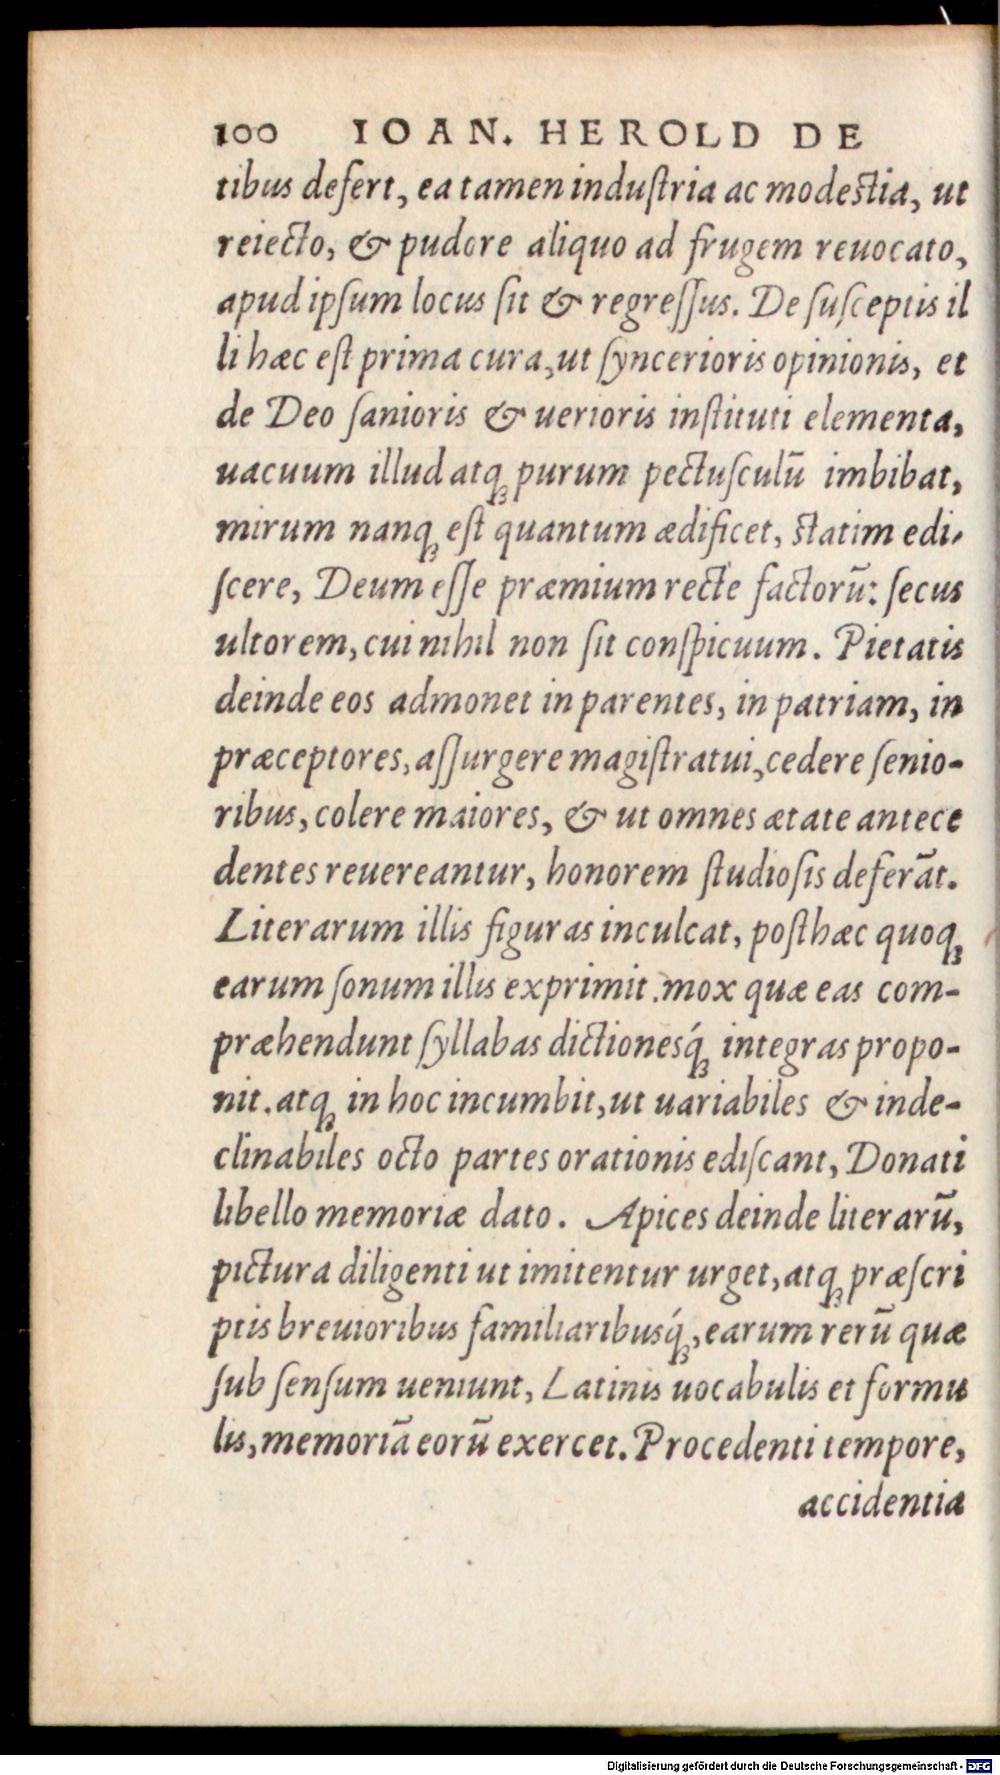 100 IOAN. HEROLD DE
tibus defert, ea tamen induſtria ac modestia, ut
reiecto, & pudore aliquo ad frugem reuocato,
apud ipſum locus ſit & regreſſus. De ſuſceptis il
li hæc eſt prima cura, ut ſyncerioris opinionis, et
de Deo ſanioris & uerioris inſtituti elementa,
uacuum illud atq́ꝫ purum pectuſculū imbibat,
mirum nanqꝫ eſt quantum ædificet, statim edi-
ſcere, Deum eſſe præmium recte factorū: ſecus
ultorem, cui nihil non ſit conſpicuum. Pietatis
deinde eos admonet in parentes, in patriam, in
præceptores, aſſurgere magiſtratui, cedere ſenio-
ribus, colere maiores, & ut omnes ætate antece
dentes reuereantur, honorem ſtudioſis deferāt.
Literarum illis figuras inculcat, poſthæc quoqꝫ
earum ſonum illis exprimit. mox quæ eas com-
præhendunt ſyllabas dictionesq́ꝫ integras propo-
nit. atqꝫ in hoc incumbit, ut uariabiles & inde-
clinabiles octo partes orationis ediſcant, Donati
libello memoriæ dato. Apices deinde literarū,
pictura diligenti ut imitentur urget, atqꝫ præſcri
ptis breuioribus familiaribusq́ꝫ, earum rerū quæ
ſub ſenſum ueniunt, Latinis uocabulis et formu
lis, memoriā eorū exercet. Procedenti tempore,
accidentia
Digitalisierung gefördert durch die Deutsche Forschungsgemeinschaft - DFG